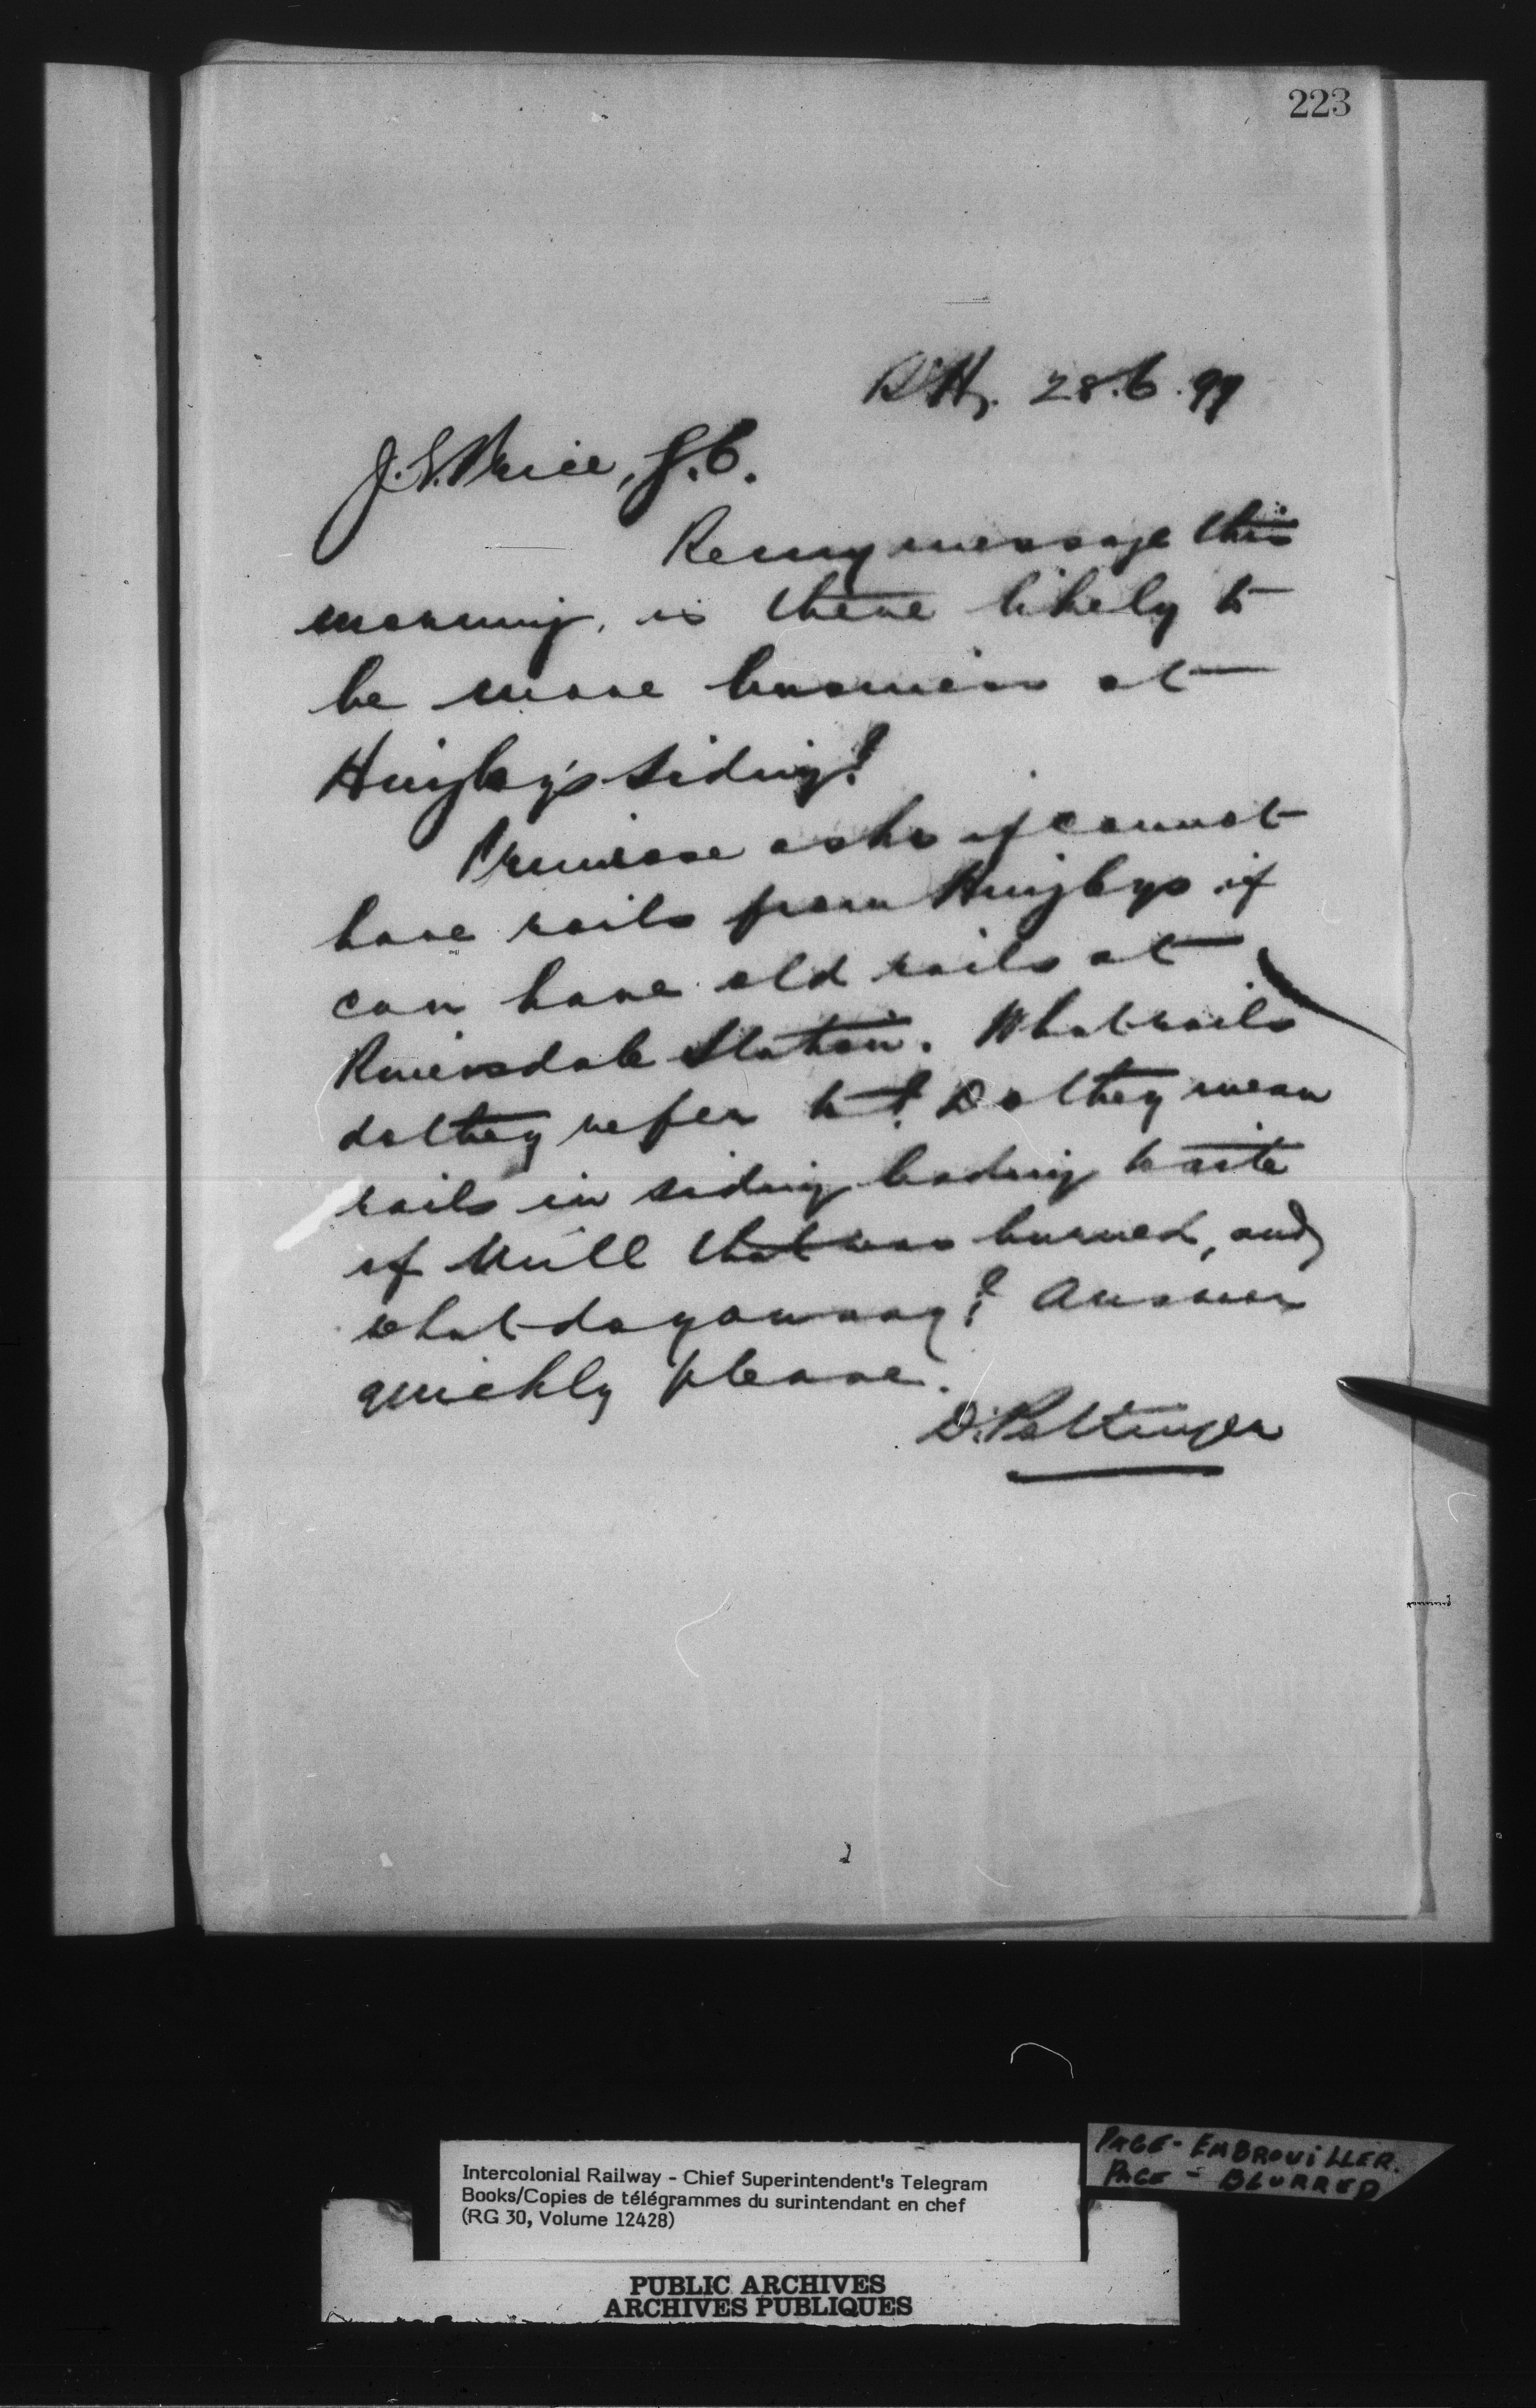 223
28.6.99
J.S. Price, J.C.
Re my message this
morning, is there likely to
be more business at
Huigley's Siding?
Primrose asks if cannot
have rails from Huigleys if
can have old rails at
Riversdale Station. What rails
do they refer to? Do they mean
rails in siding leading to site
of Mill that was burned, and
what do you say? Answer
quickly please.
D. Pottinger
Intercolonial Railway - Chief Superintendent's Telegram
Books/Copies de télégrammes du surintendant en chef
(RG 30, Volume 12428)
PAGE - EMBROUiLLER.
PAGE - BLURRED
PUBLIC ARCHIVES
ARCHIVES PUBLIQUES